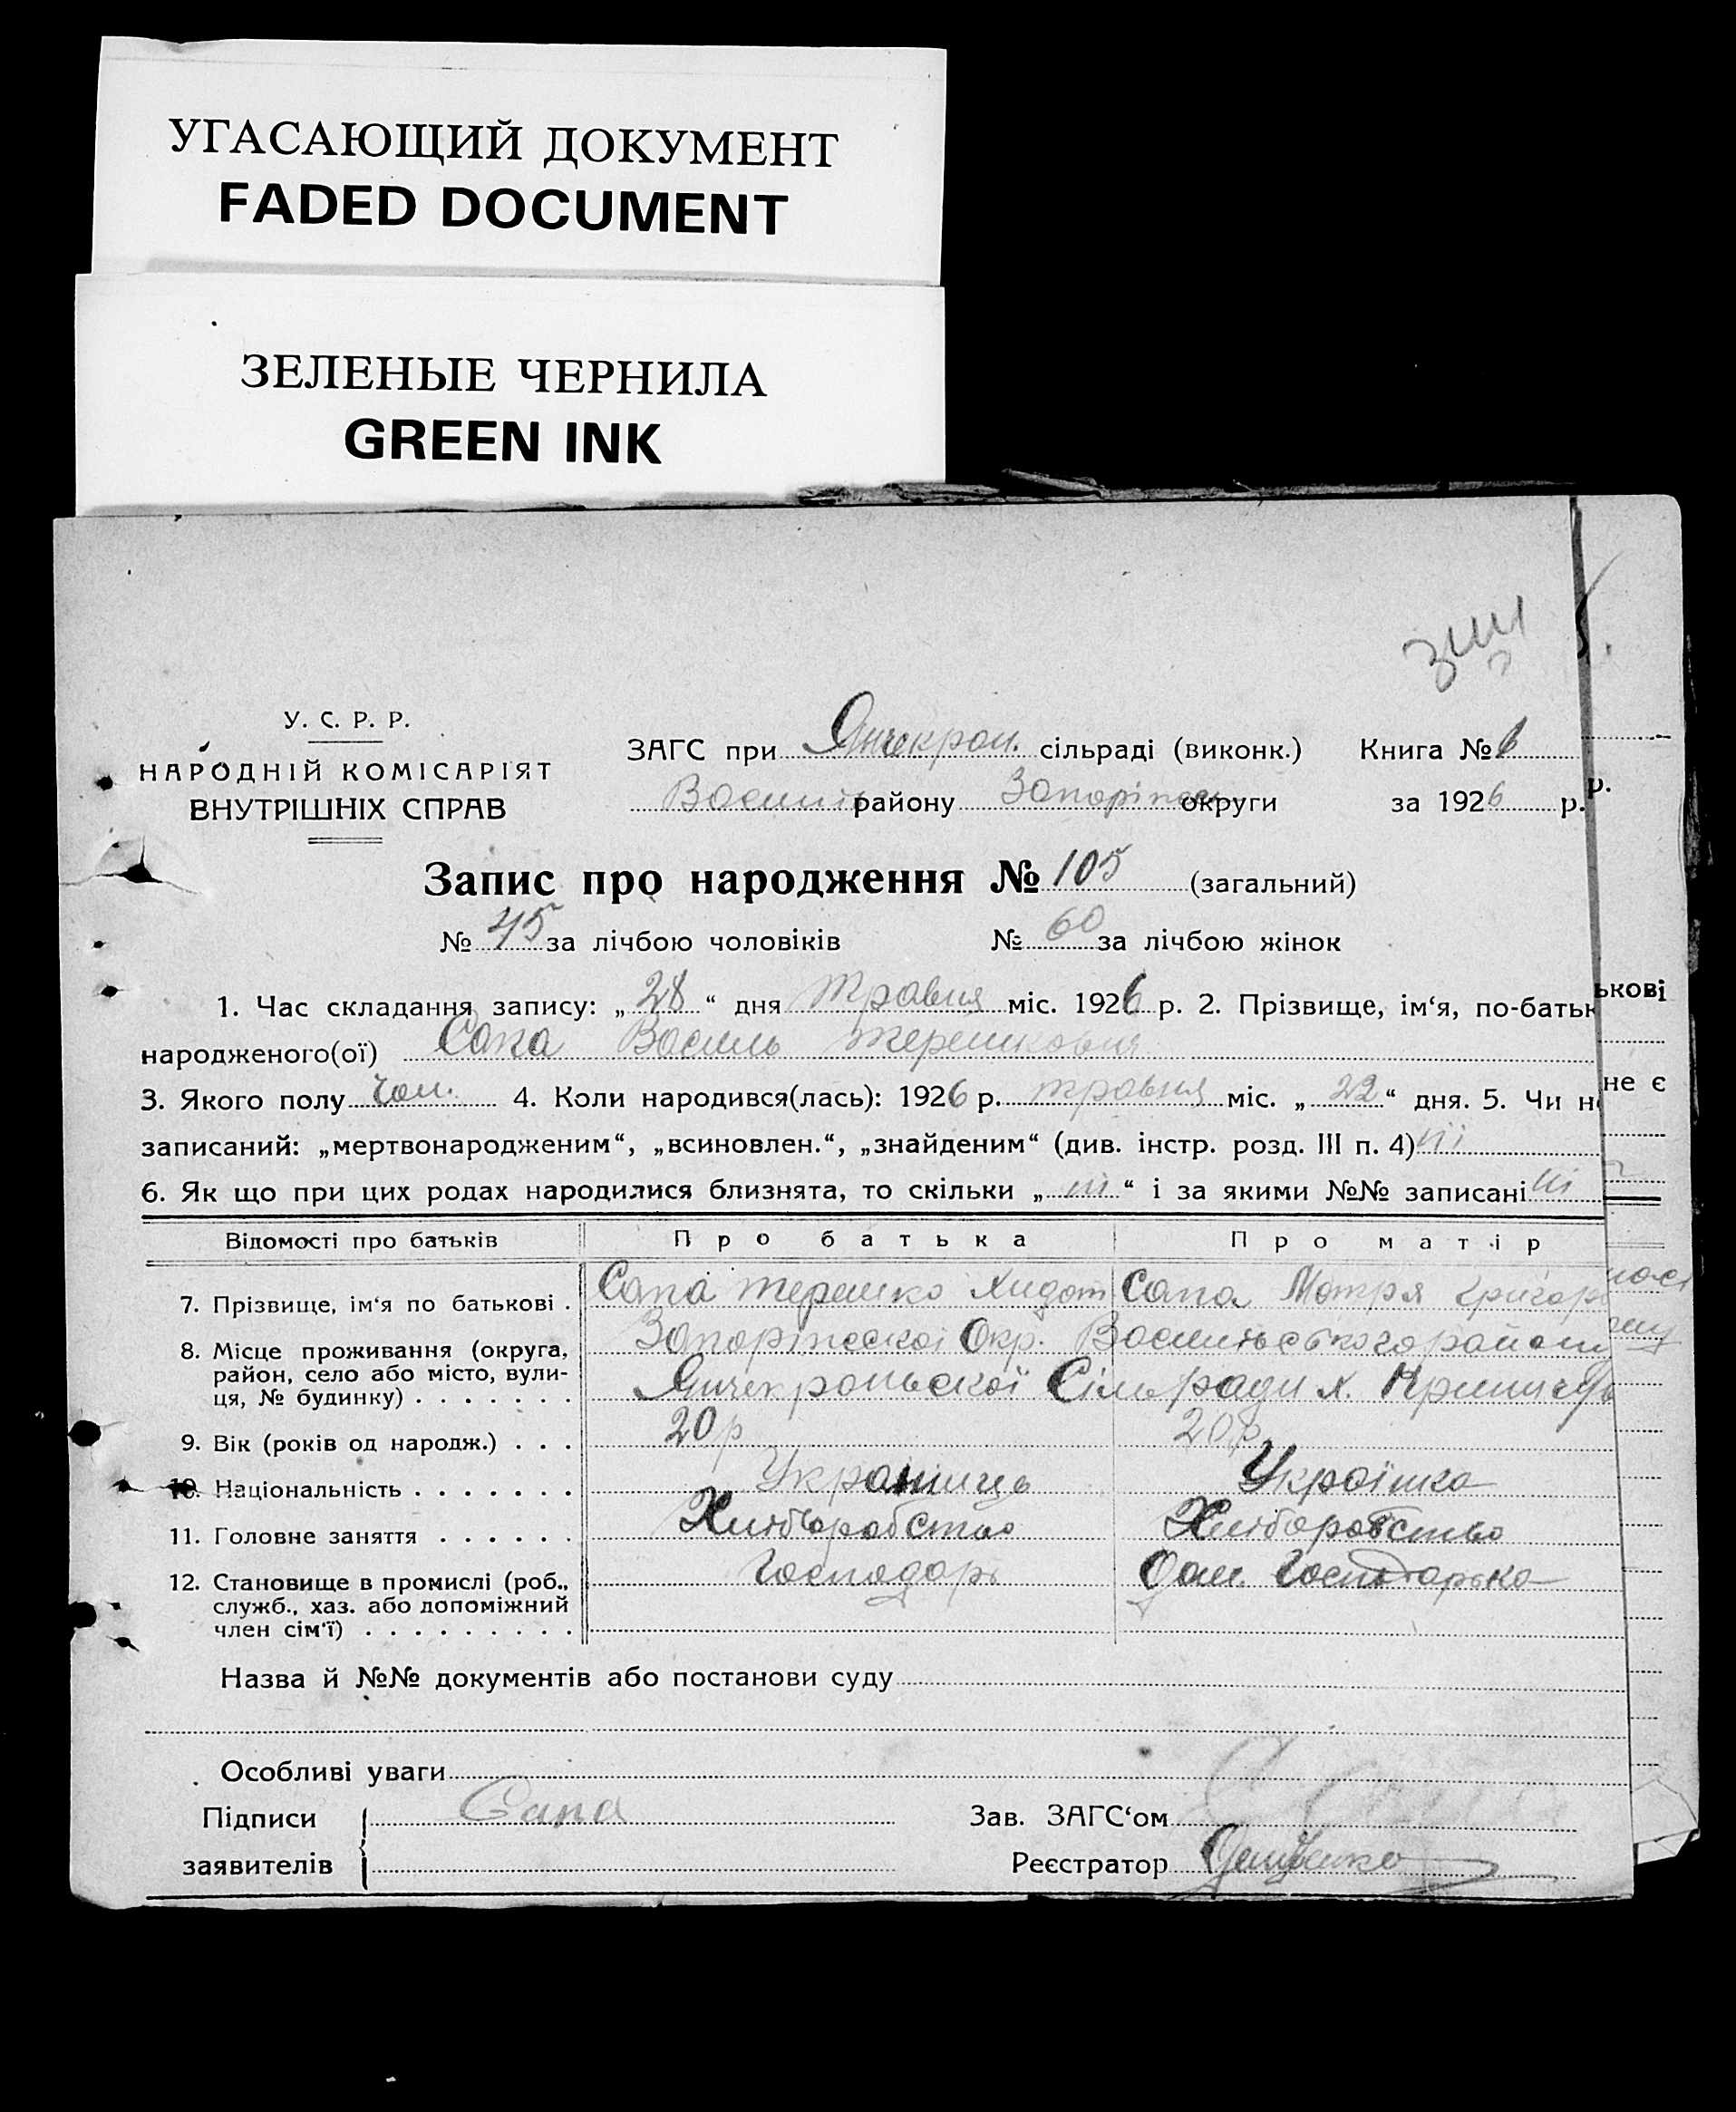 УГАСАЮЩИЙ ДОКУМЕНТ
FADED DOCUMENT
ЗЕЛЕНЫЕ ЧЕРНИЛА
GREEN INK
У. С. Р. Р.
НАРОДНІЙ КОМІСАРІЯТ
ВНУТРІШНІХ СПРАВ
ЗАГС при Янчекрон. сільраді (виконк.) Книга № 6
району Запоріжськ округи за 1926 р.
Запис про народження № 105 (загальний)
№ 45 за лічбою чоловіків № 60 за лічбою жінок
1. Час складання запису: „28“ дня травня міс. 1926 р. 2. Прізвище, ім‘я, по-батьк
ькові
народженого(ої) Сапа Василь Терешкович
3. Якого полу чол. 4. Коли народився(лась): 1926 р. травня міс. „22“ дня. 5. Чи не
не є
записаний: „мертвонародженим“, „всиновлен.“, „знайденим“ (див. інстр. розд. III п. 4) ні
6. Як що при цих родах народилися близнята, то скільки „ні“ і за якими №№ записані ні
Відомості про батьків Про батька Про матір
7. Прізвище, ім‘я по батькові . Сапа Терешко Сапа Мотря Григор
8. Місце проживання (округа, район, село або місто, вулиця, № будинку) . . . . . . . Запоріжської Окр. Василівського району
Янчекропської Сільради х.
9. Вік (років од народж.) . . . 20р 20р
10. Національність . . . . . . . Українець Українка
11. Головне заняття . . . . . . Хліборобство Хліборобство
12. Становище в промислі (роб., служб., хаз. або допоміжний член сім‘ї) . . . . . . . . . Господарь Дом. Господарька
Назва й №№ документів або постанови суду
Особливі уваги
Підписи Сапа Зав. ЗАГС‘ом
заявителів Реєстратор